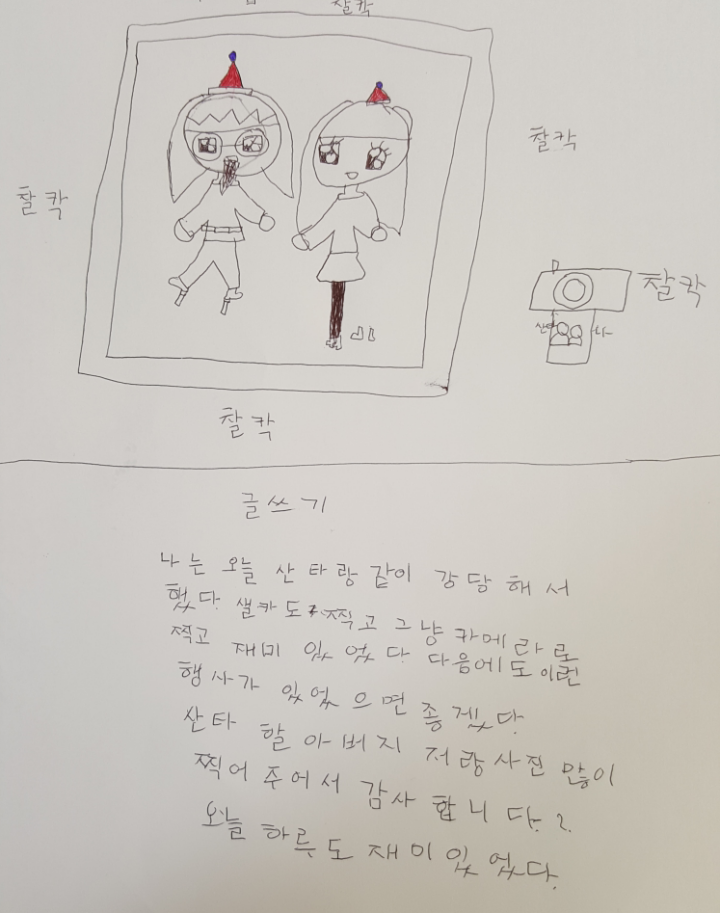 찰칵
찰칵
찰칵
찰칵
산타 나
찰칵
글쓰기
나는 오늘 산타랑 같이 강당 해서
했다. 샐카도 찍고 그냥 카메라로
찍고 재미 있었다 다음에도 이런
행사가 있었으면 좋겠다.
산타 할아버지 저랑사진 많이
찍어 주어서 감사 합니다.
오늘 하루도 재미있었다.